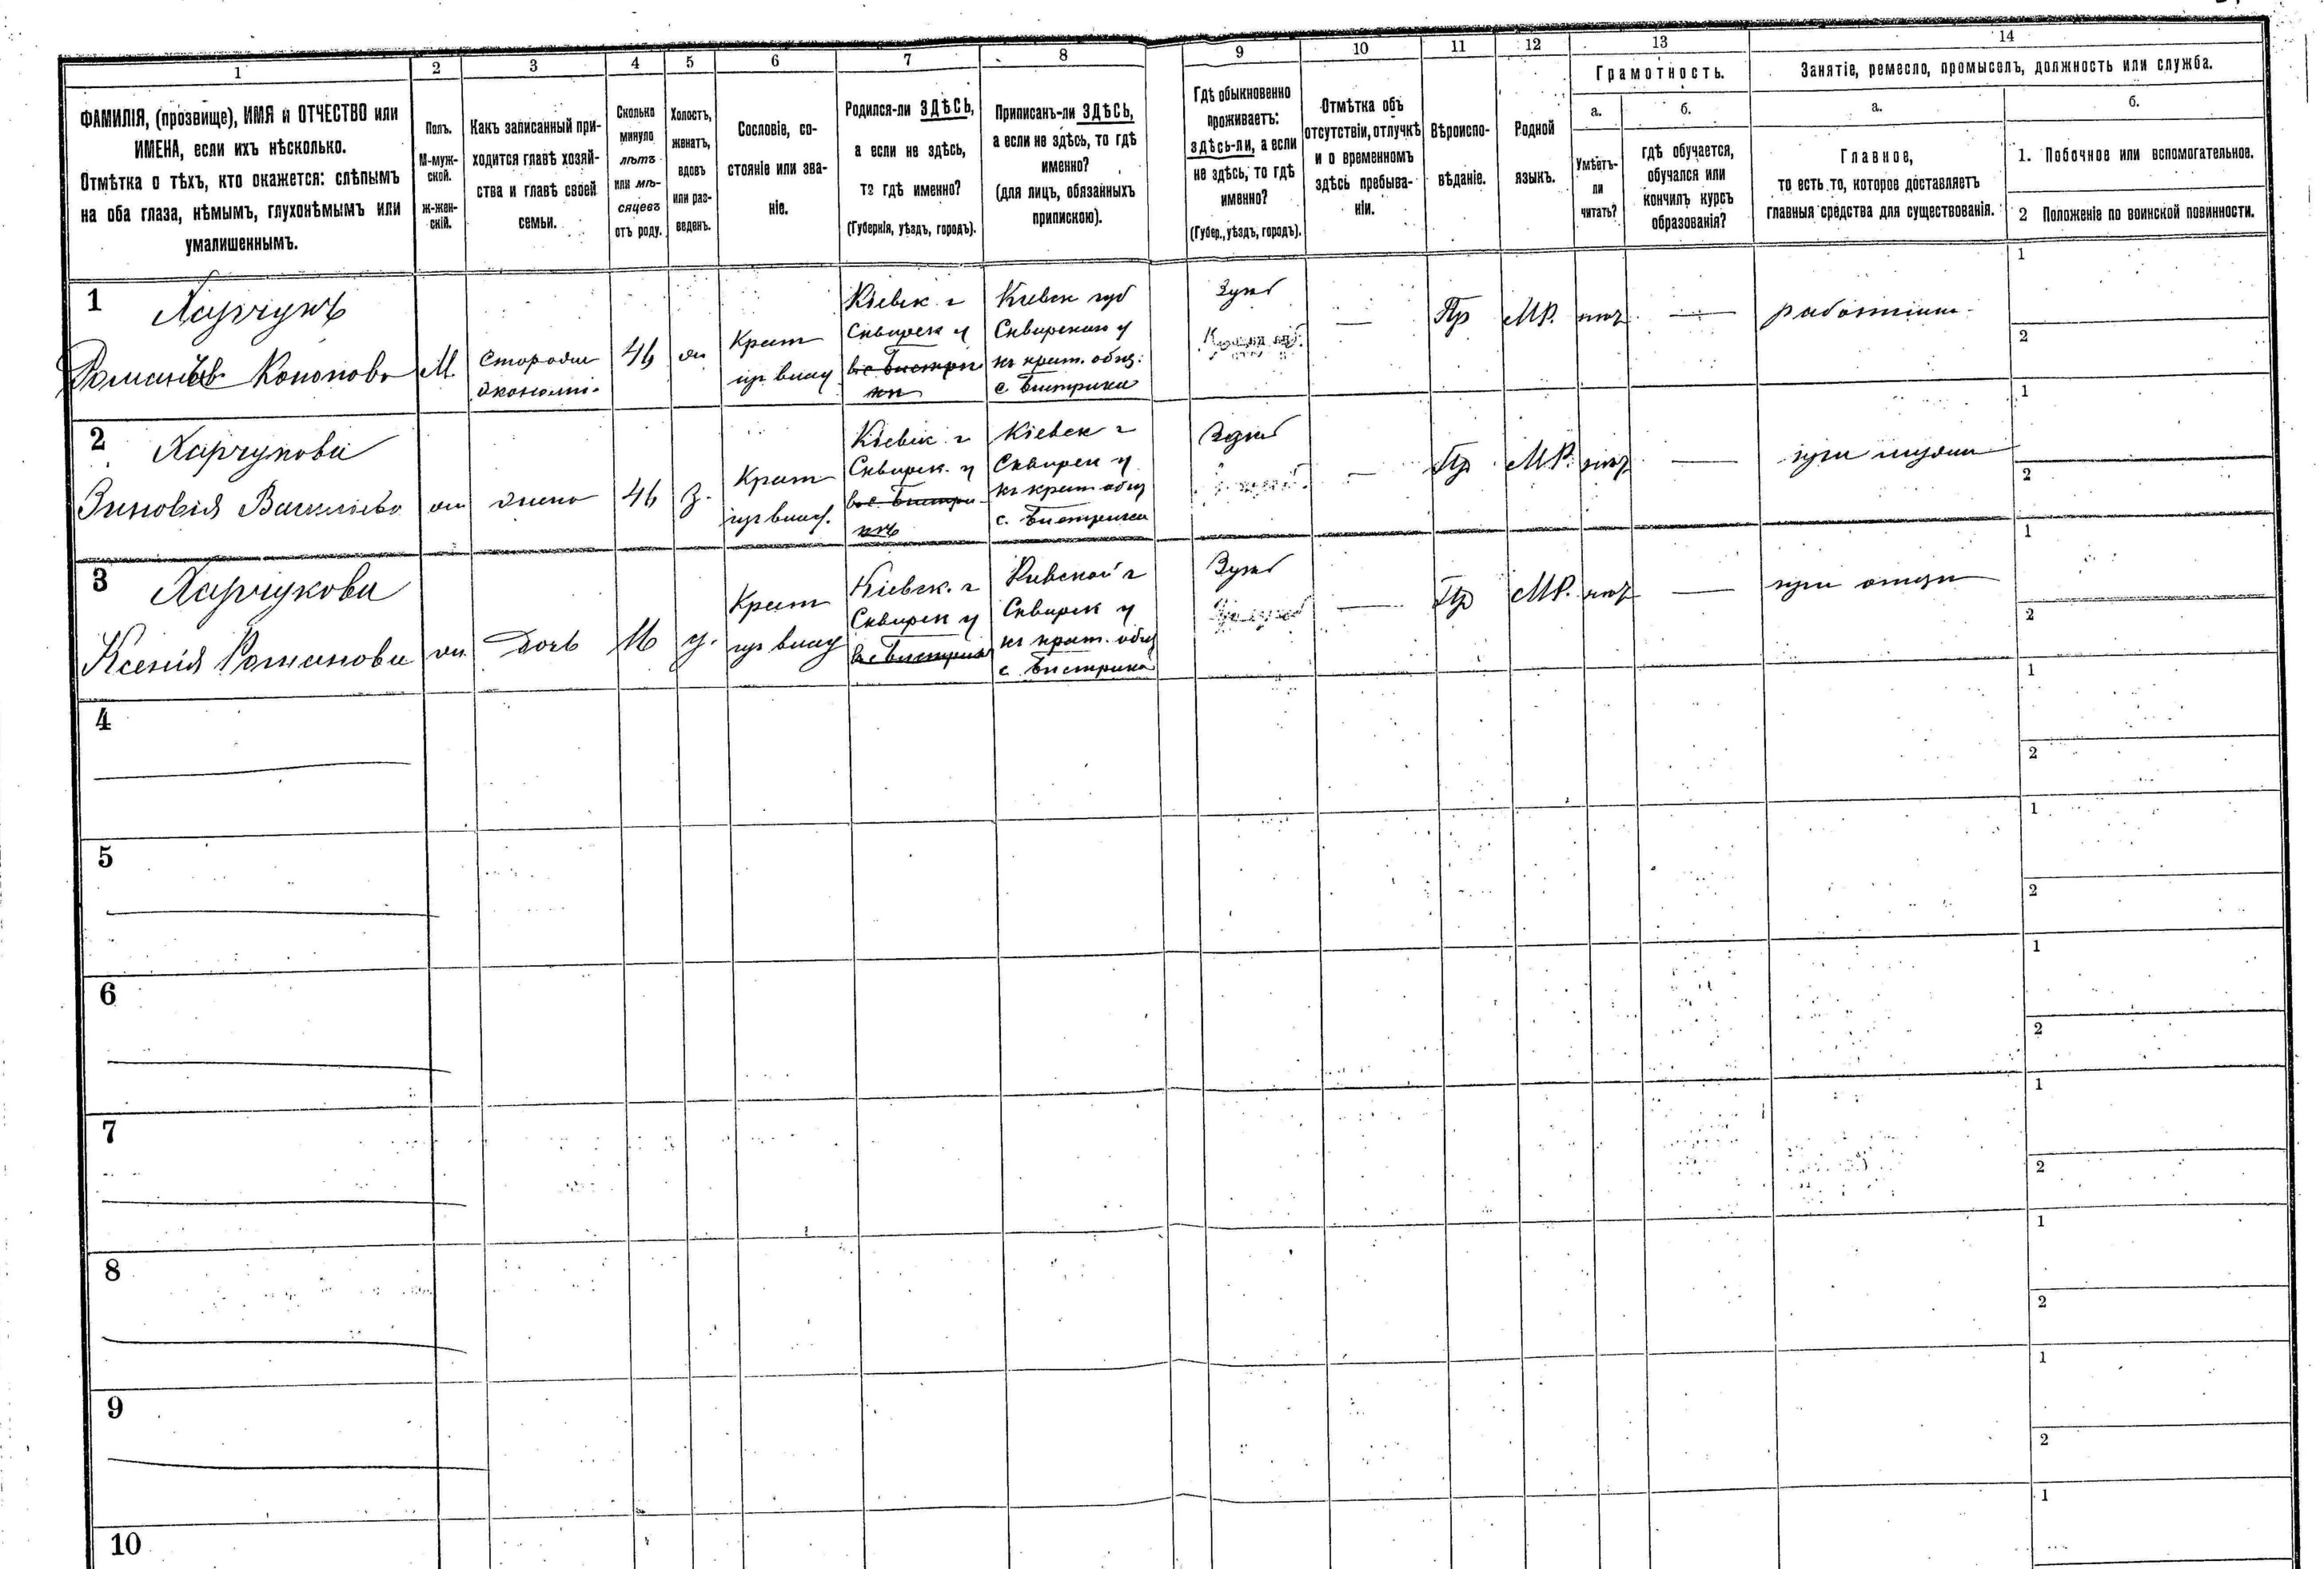 1 2 3 4 5 6 7 8 9 10 11 12 13 14
ФАМИЛІЯ, (прозвище), ИМЯ и ОТЧЕСТВО или
ИМЕНА, если ихъ нѣсколько.
Отмѣтка о тѣхъ, кто окажется: слѣпымъ
на оба глаза, нѣмымъ, глухонѣмымъ или
умалишеннымъ.
Полъ.
М-муж-
ской.
ж-жен-
скій.
Какъ записанный при-
ходится главѣ хозяй-
ства и главѣ своей
семьи.
Сколько
минуло
лѣтъ
или мѣ-
сяцевъ
отъ роду.
Холостъ,
женатъ,
вдовъ
или раз-
веденъ.
Сословіе, со-
стояніе или зва-
ніе.
Родился-ли ЗДѢСЬ,
а если не здѣсь,
то гдѣ именно?
(Губернія, уѣздъ, городъ).
Приписанъ-ли ЗДѢСЬ,
а если не здѣсь, то гдѣ
именно?
(для лицъ, обязанныхъ
припискою).
Гдѣ обыкновенно
проживаетъ:
здѣсь-ли, а если
не здѣсь, то гдѣ
именно?
(Губер., уѣздъ, городъ).
Отмѣтка объ
отсутствіи, отлучкѣ
и о временномъ
здѣсь пребыва-
ніи.
Вѣроиспо-
вѣданіе.
Родной
языкъ.
Грамотность.
а.
Умѣетъ-
ли
читать?
б.
гдѣ обучается,
обучался или
кончилъ курсъ
образованія?
Занятіе, ремесло, промыселъ, должность или служба.
а.
Главное,
то есть то, которое доставляетъ
главныя средства для существованія.
б.
1. Побочное или вспомогательное.
2 Положеніе по воинской повинности.
1
Харчукъ
Кононовъ
М.
Сторожъ
экономі.
46
Крест
Кіевск. г
Сквирск у
Кіевск губ
Сквирскаго у
къ крест. общ.
с Быстрика
Пр
МР.
1
2
2
Харчукова
Зиновія Васильева
жена
46
З.
Крест
Кіевск. г
Сквирск. у
Кіевск г
Сквирск у
къ крест общ
с. Быстрика
Пр
МР.
при мужи
1
2
3
Харчукова
Ксенія Романова
дочь
16
Крест
Кіевск. г
Сквирск у
Кивской г
Сквирск у
къ крест. общ
с Быстрика
Пр
МР.
при отци
1
2
4
1
2
5
1
2
6
1
2
7
1
2
8
1
2
9
1
2
10
1